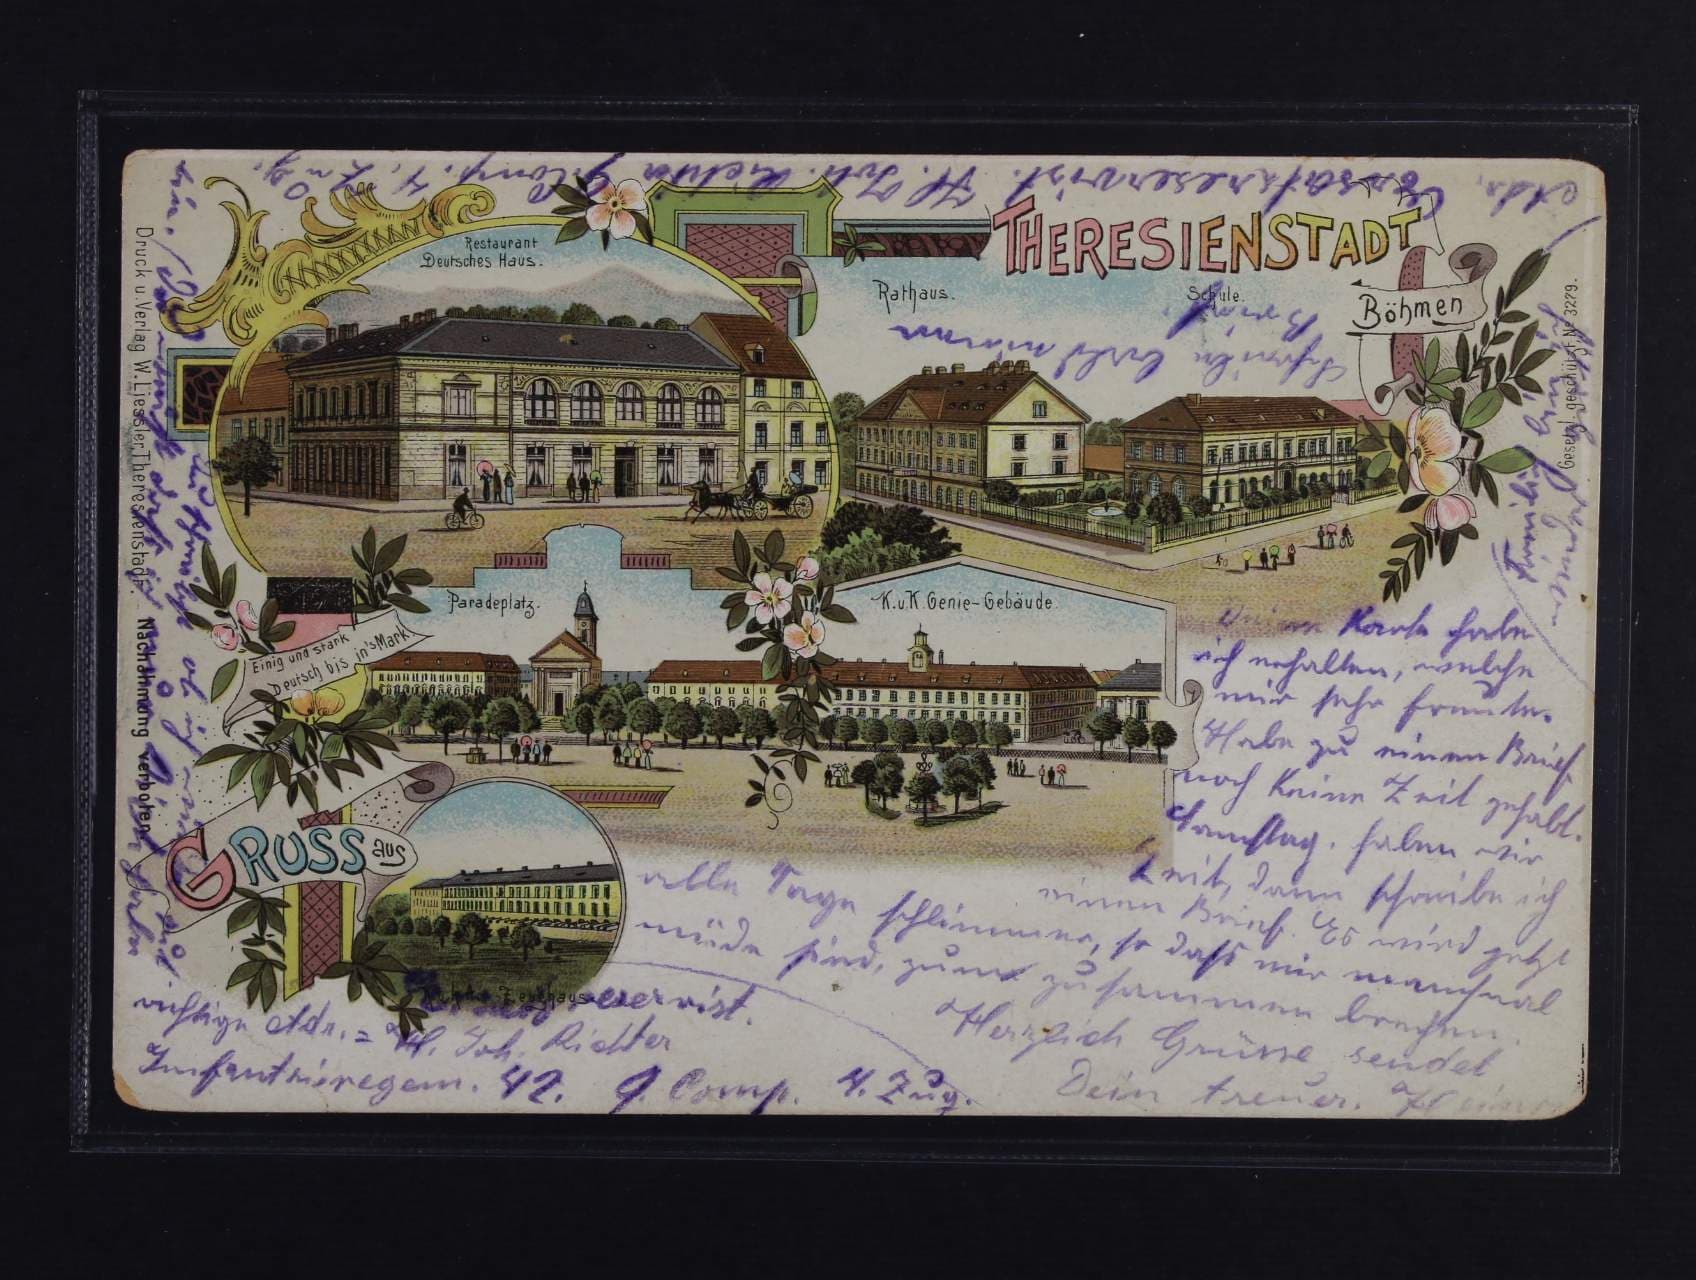 THERESIENSTADT
Böhmen
Restaurant
Deutsches Haus.
Rathaus.
Schule.
Paradeplatz.
K. u. K. Genie-Gebäude.
Einig und stark
Deutsch bis in's Mark!
GRUSS aus
Zeughaus
Druck u. Verlag W. Liessler Theresienstadt. Nachahmung verboten.
Gesetzl. geschützt No 3279.
Karte habe
ich erhalten, welche
mir sehr freute.
Habe zu einen Brief
noch keine Zeit gehabt.
Samstag. haben wir
Zeit, dann schreibe ich
einen Brief. Es wird jetzt
alle Tage schlimmer, so dass wir manchmal
müde sind, zum zusammen brechen.
Herzlich Grüsse sendet
Dein treuer.
richtige Adr. = H. Joh. Richter
Infantrieregem. 42. 9. Comp. 4. Zug.
Adr. Ersatzreservist. H. Joh. Richter 9 Comp. 4. Zug
schreibe bald einen
Brief